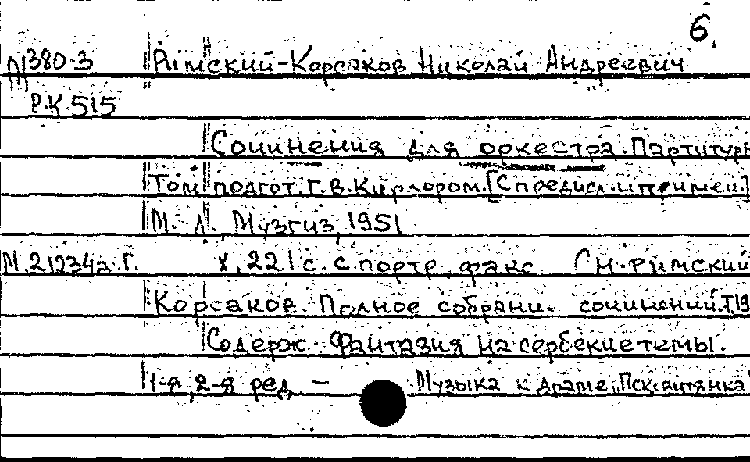 6.
М380-3 Римский-Корсаков Николай Андреевич
Р.К 515
Сочинения для оркестра. Партитуры
Том подгот. Г.В.Киркором. [С предисл. и примеч.]
М.-Л., Музгиз, 1951
М.21234а-Г. X, 221 с. с портр., факс См. Римский
Корсаков. Полное собрани. сочинений. Т19
Содерж.: Фантазия на сербские темы.
1-я, 2-я ред. — Музыка к драме „Псковитянка"